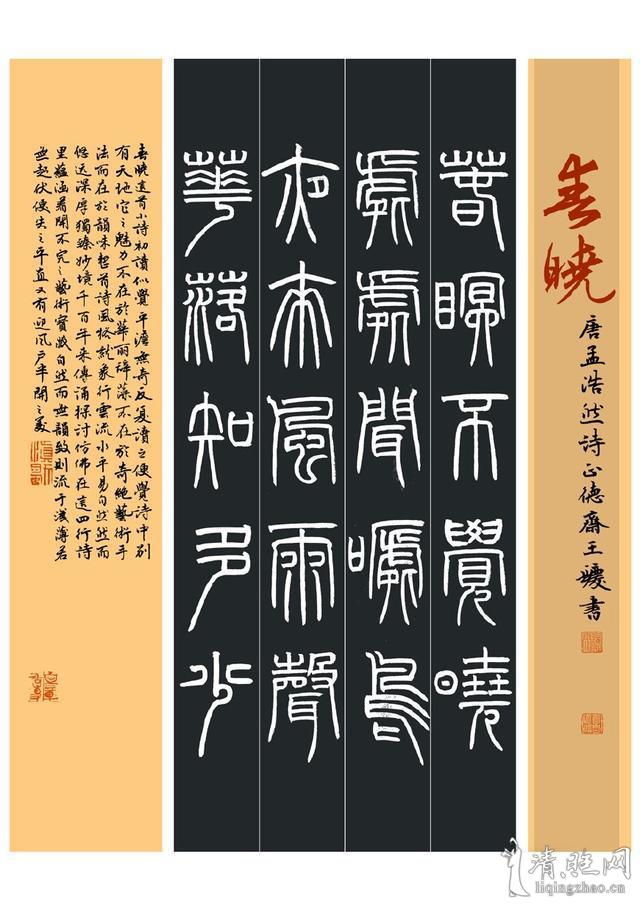 春曉
唐孟浩然詩正德齋王書
春眠不覺曉
處處聞啼鳥
夜來風雨聲
華落知多少
春曉這首小詩初讀似覺平澹無奇反复讀之便覺詩中別
有天地它之魅力不在於華麗辭藻不在於奇絕藝術手
法而在於韻味整首詩風格就象行雲流水平易自然然而
悠远深厚獨臻妙境千百年來傳誦探討仿佛在這四行詩
里蘊涵着開不完之藝術寶藏自然而無韻致則流于淺薄若
無起伏便失之平直又有迎風戶半開之美
清照网
liqingzhao.com